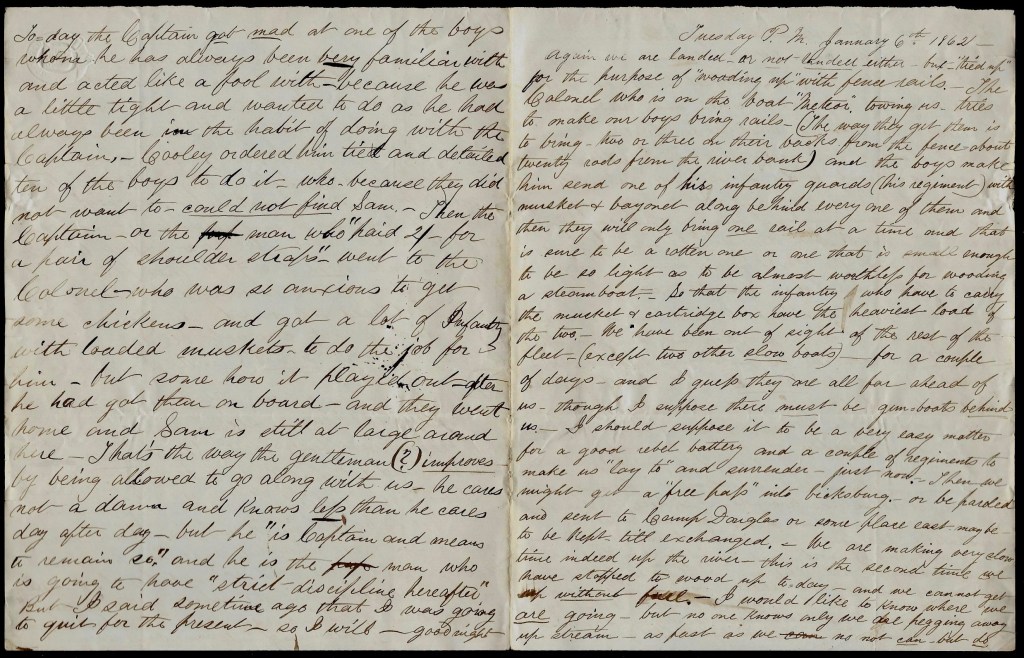 To=day the Captain got mad at one of the boys
whom he has always been very familiar with
and acted like a fool with - because he was
a little tight and wanted to do as he had
always been in the habit of doing with the
Captain. - Cooley ordered him tied and detailed
ten of the boys to do it - who - because they did
not want to - could not find Sam. - Then the
Captain - or the man who "paid 2/- for
a pair of shoulder straps" - went to the
Colonel - who was so anxious to get
some chickens - and got a lot of Infantry
with loaded muskets - to do the job for
him - but some how it played out - after
he had got them on board - and they went
home and Sam is still at large around
here - That's the way the gentleman (?) improves
by being allowed to go along with us - he cares
not a damn and knows less than he cares
day after day - but he "is Captain and means
to remain so," and he is the man who
is going to have "strict discipline hereafter"
But I said sometime ago that I was going
to quit for the present - so I will - goodnight
Tuesday P. M. January 6th 1862 -
Again we are landed - or not landed either - but "tied up"
for the purpose of "wooding up" with fence rails. - The
Colonel who is on the boat "Meteor, towing us - tries
to make our boys bring rails - (The way they get them is
to bring - two or three on their backs from the fence about
twenty rods from the river bank) and the boys make
him send one of his infantry guards (his regiment) with
musket & bayonet along behind every one of them and
then they will only bring one rail at a time and that
is sure to be a rotten one or one that is small enough
to be so light as to be almost worthless for wooding
a steamboat. - So that the infantry who have to carry
the musket & cartridge box have the heaviest load of
the two. - We have been out of sight of the rest of the
fleet - (except two other slow boats) - for a couple
of days - and I guess they are all far ahead of
us - though I suppose there must be gun-boats behind
us - I should suppose it to be a very easy matter
for a good rebel battery and a couple of regiments to
make us "lay to" and surrender - just now. - Then we
might get a "free pass" into Vicksburg. - or be paroled
and sent to Camp Douglas or some place east may be
to be kept till exchanged. - We are making very slow
time indeed up the river - this is the second time we
have stopped to wood up to-day - and we cannot get
up without fuel. - I would like to know where we
are going - but no one knows only we are pegging away
up stream - as fast as we can no not can - but do